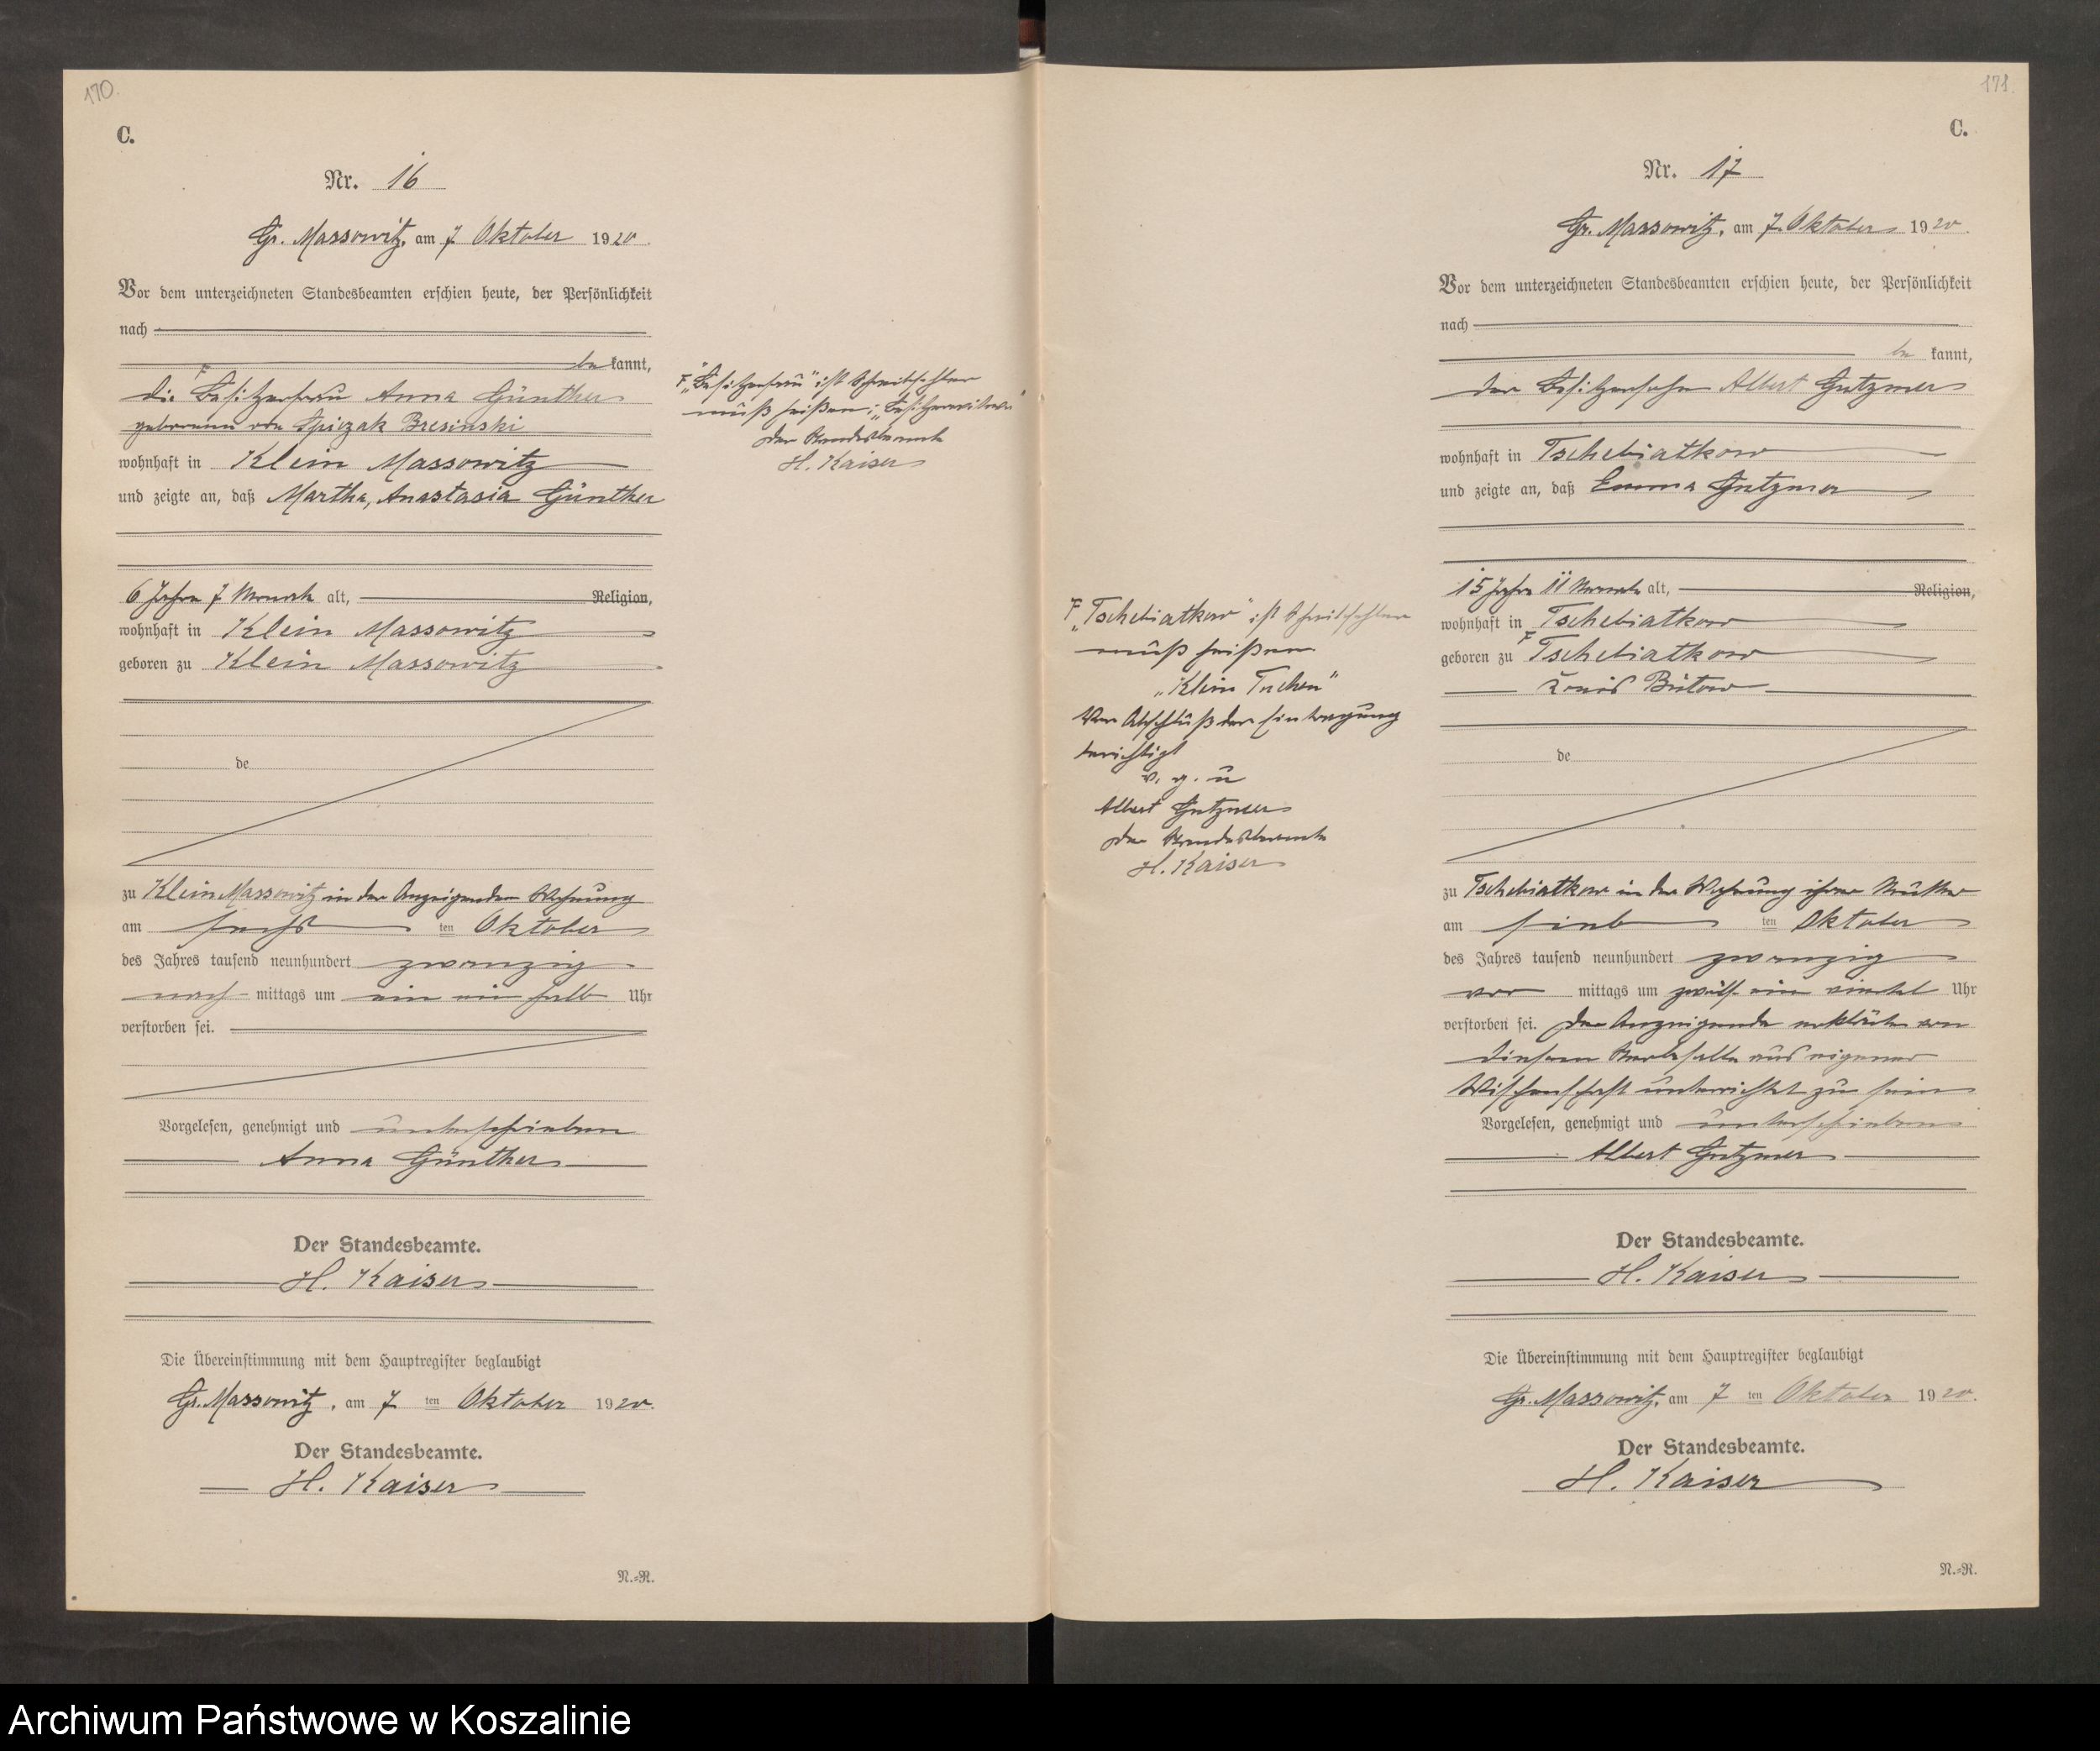 170.
C.
Nr. 16
Gr. Massowitz, am 7 Oktober 1920.
Vor dem unterzeichneten Standesbeamten erschien heute, der Persönlichkeit
nach
be kannt,
die F Besitzerfrau Anna Günther
geborene von Spiczak Bresinski
wohnhaft in Klein Massowitz
und zeigte an, daß Martha, Anastasia Günther
6 Jahre 7 Monate alt, Religion,
wohnhaft in Klein Massowitz
geboren zu Klein Massowitz
de
zu Klein Massowitz in der Anzeigenden Wohnung
am sechs ten Oktober
des Jahres tausend neunhundert zwanzig
nach mittags um ein ein halb Uhr
verstorben sei.
Vorgelesen, genehmigt und unterschrieben
Anna Günther
Der Standesbeamte.
H. Kaiser
Die Übereinstimmung mit dem Hauptregister beglaubigt
Gr. Massowitz, am 7 ten Oktober 1920.
Der Standesbeamte.
H. Kaiser
N.=R.
F „Besitzerfrau" ist Schreibfehler
muß heißen: „Besitzerwitwe"
Der Standesbeamte
H. Kaiser
171.
C.
Nr. 17
Gr. Massowitz, am 7. Oktober 1920.
Vor dem unterzeichneten Standesbeamten erschien heute, der Persönlichkeit
nach
be kannt,
der Besitzersohn Albert Gutzmer
wohnhaft in Tschebiatkow
und zeigte an, daß Emma Gutzmer
15 Jahre 11 Monate alt, Religion,
wohnhaft in Tschebiatkow
geboren zu F Tschebiatkow
Kreis Bütow
de
zu Tschebiatkow in der Wohnung ihrer Mutter
am sieb ten Oktober
des Jahres tausend neunhundert zwanzig
vor mittags um zwölf ein viertel Uhr
verstorben sei. Der Anzeigende erklärte von
diesem Sterbefalle aus eigener
Wissenschaft unterrichtet zu sein
Vorgelesen, genehmigt und unterschrieben
Albert Gutzmer
Der Standesbeamte.
H. Kaiser
Die Übereinstimmung mit dem Hauptregister beglaubigt
Gr. Massowitz, am 7 ten Oktober 1920.
Der Standesbeamte.
H. Kaiser
N.=R.
F „Tschebiatkow" ist Schreibfehler
muß heißen
„Klein Tuchen"
Vor Abschluß der Eintragung
berichtigt
v. g. u
Albert Gutzmer
Der Standesbeamte
H. Kaiser
Archiwum Państwowe w Koszalinie